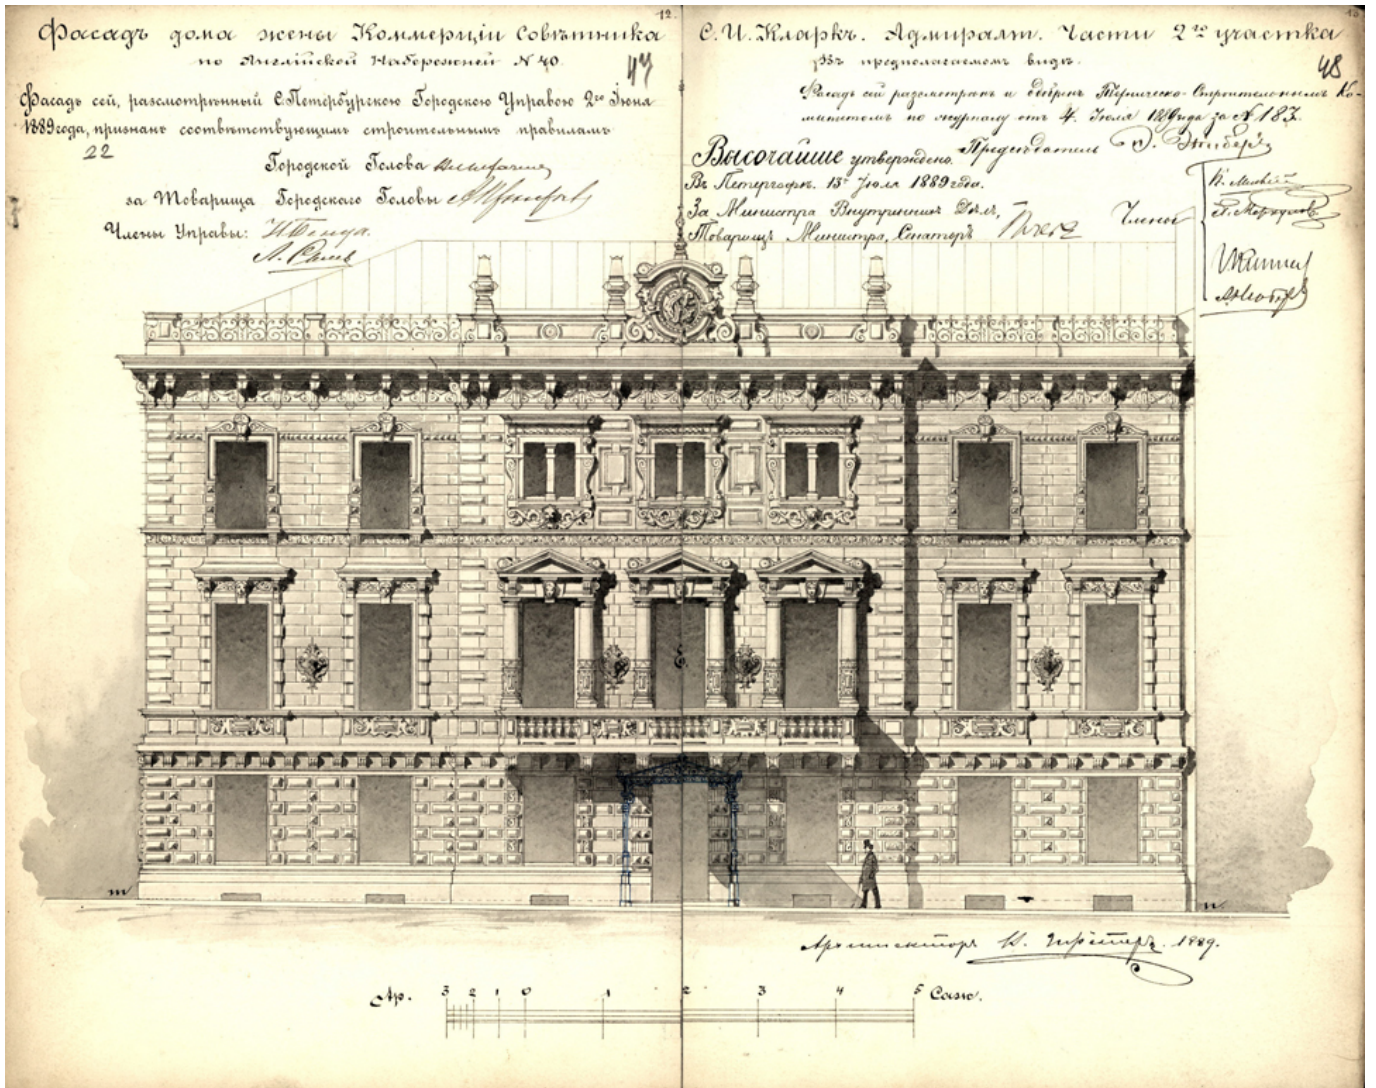 12.
Фасадъ дома жены Коммерціи Совѣтника
по Англійской Набережной № 40.
47
Фасадъ сей, разсмотрѣнный С.Петербургскою Городскою Управою 2го Іюня
1889 года, признанъ соотвѣтствующимъ строительнымъ правиламъ
22
Городской Голова
за Товарища Городскаго Головы
Члены Управы:
13.
С. И. Кларкъ. Адмиралт. Части 2го участка
въ предполагаемомъ видѣ.
48
Фасадъ сей разсмотренъ и одобренъ Техническо-Строительнымъ Ко-
митетомъ по журналу отъ 4. Іюля 1889 года за № 187.
Предсѣдатель
Высочайше утверждено.
Въ Петергофѣ. 13го Іюля 1889 года.
За Министра Внутреннихъ Дѣлъ,
Товарищъ Министра, Сенаторъ Плеве
Члены
m
n
Архитекторъ 1889.
Ар. 3 2 1 0 1 2 3 4 5 Саж.